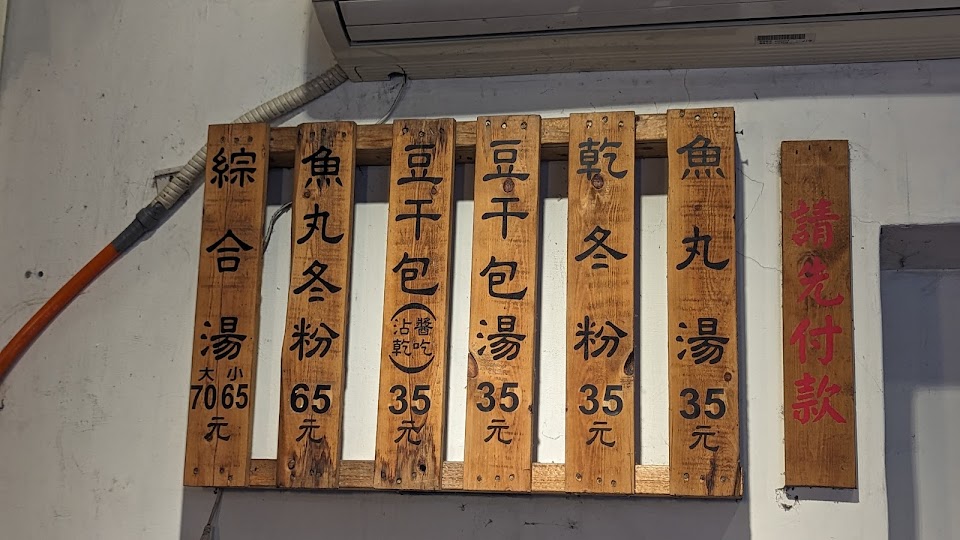 請先付款
魚丸湯35元
乾冬粉35元
豆干包湯35元
豆干包(沾醬乾吃)35元
魚丸冬粉65元
綜合湯大70小65元